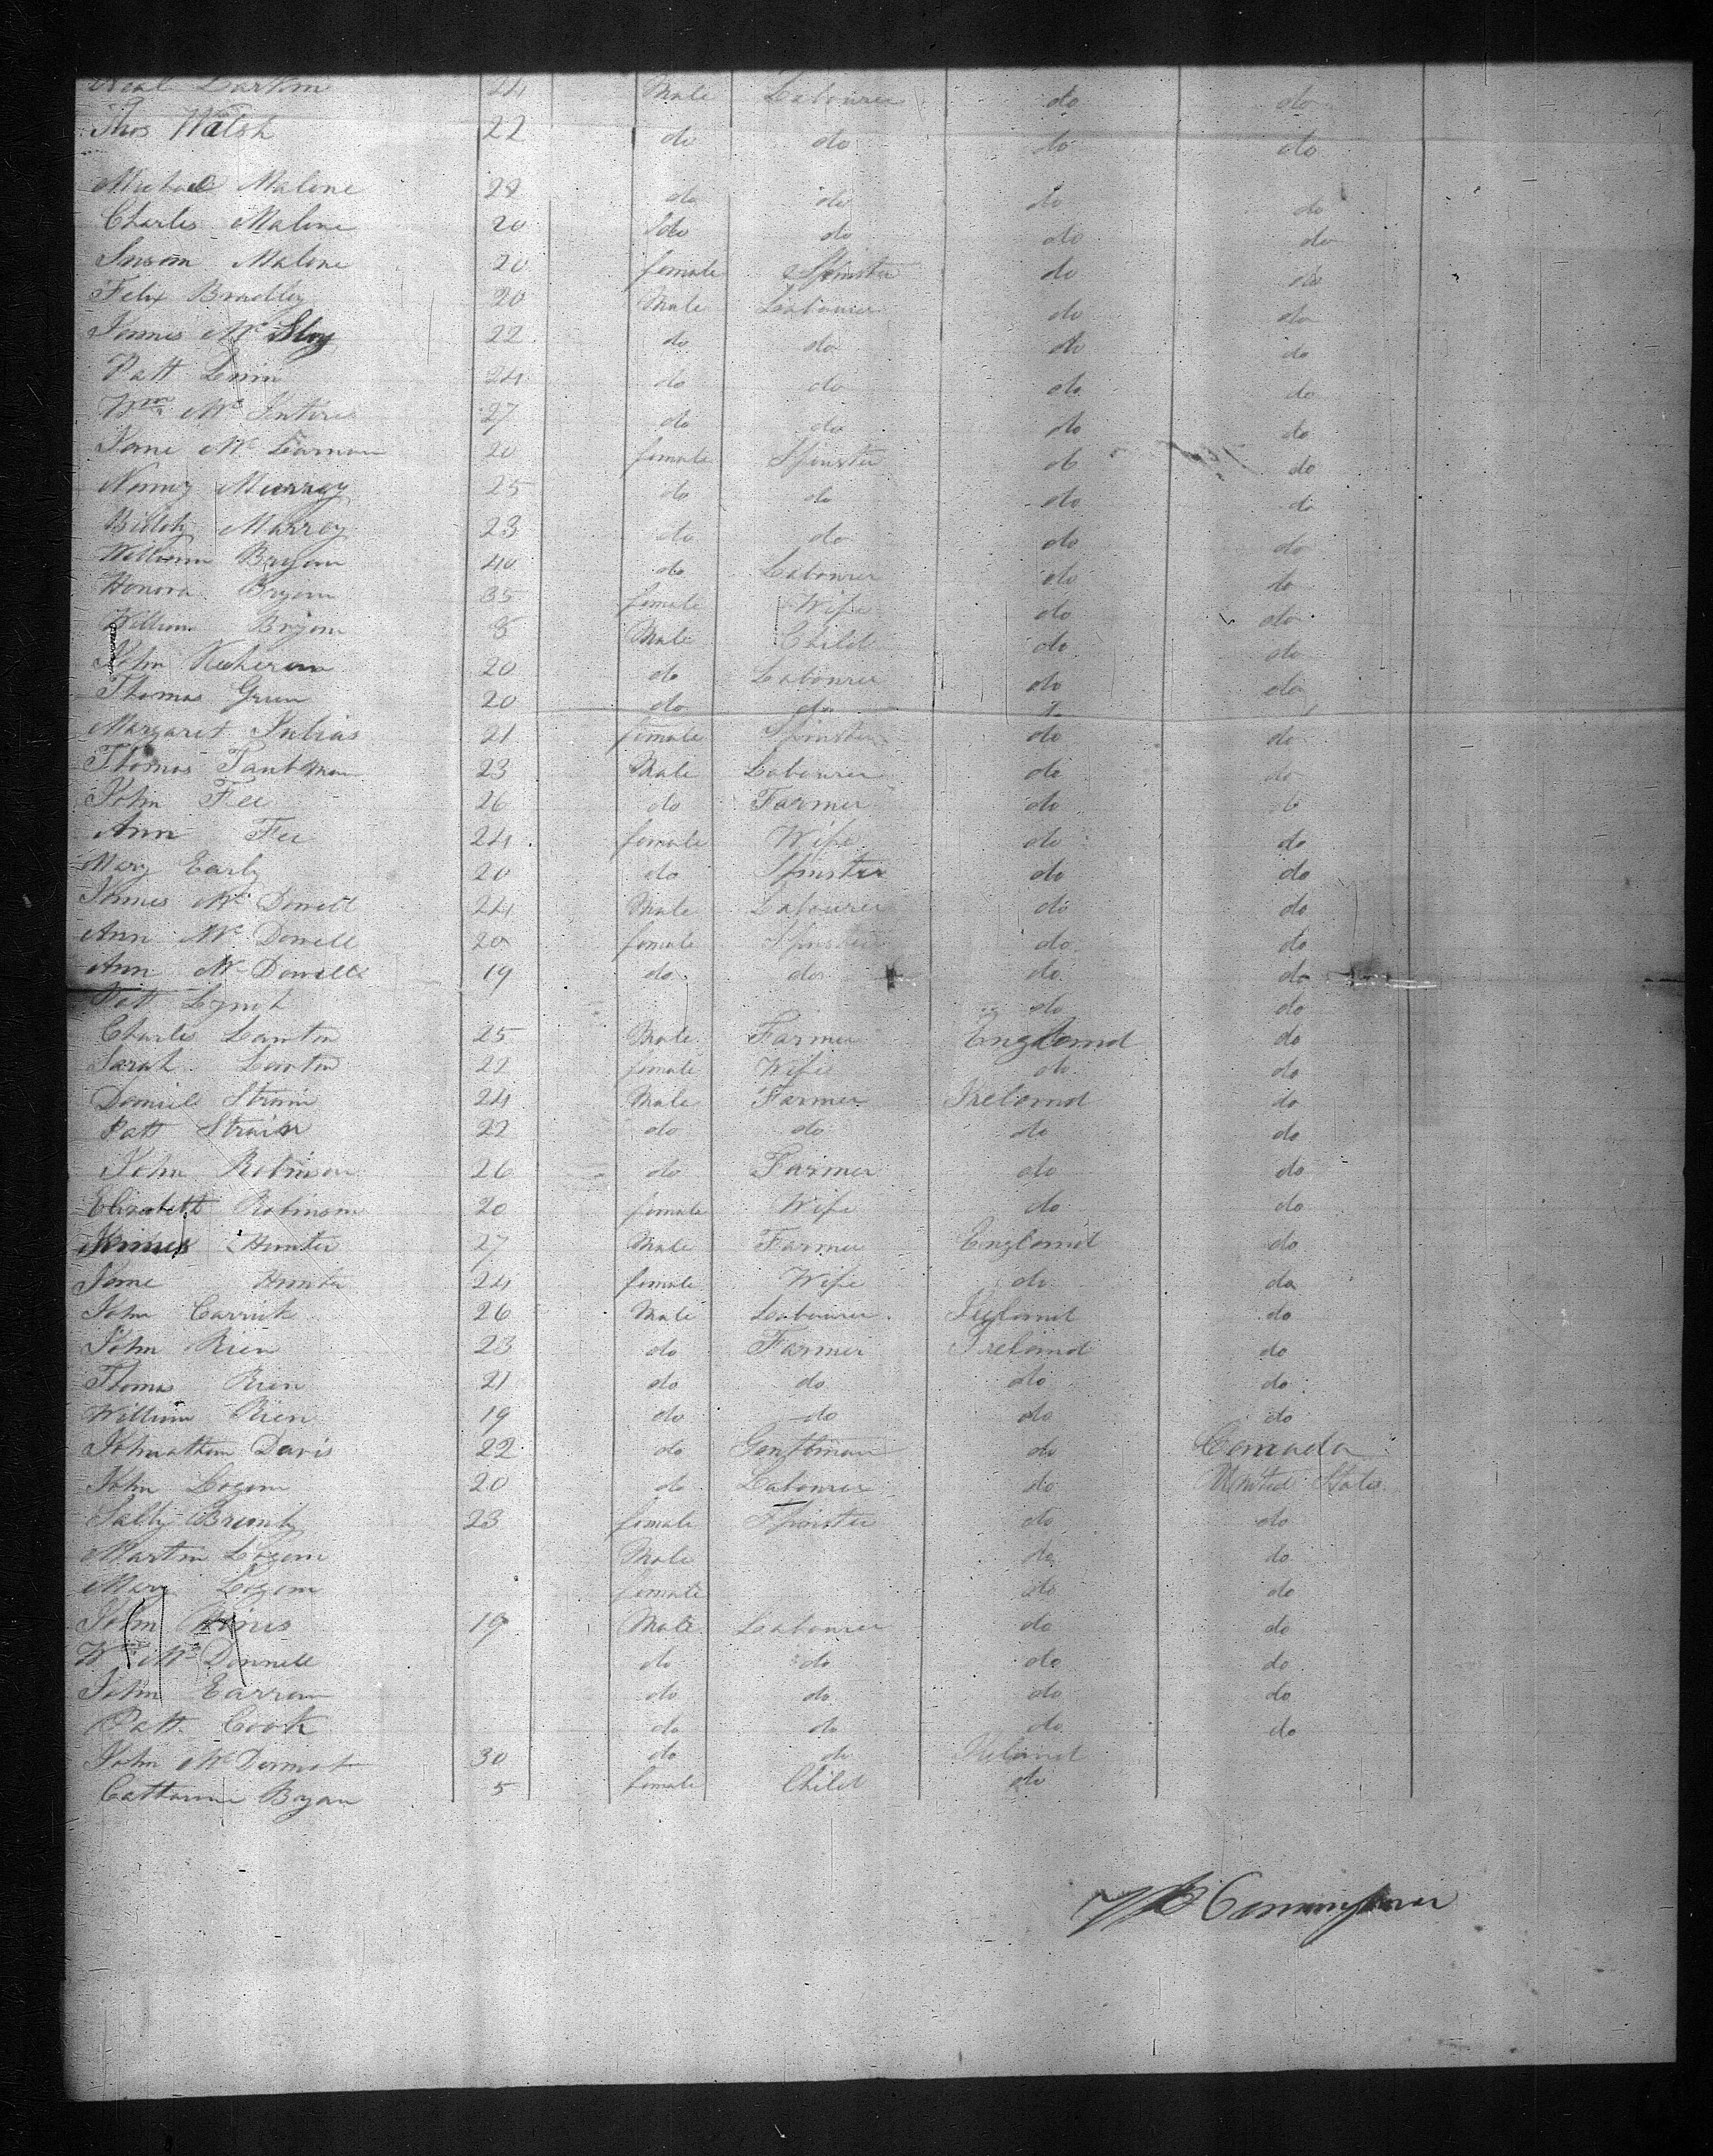 Neal Larkin 24 Male Labourer do do
Thos Walsh 22 do do do do
Michael Malone 22 do do do do
Charles Malone 20 do do do do
Susan Malone 20 female Spinster do do
Felix Bradley 20 Male Labourer do do
James Mc Sloy 22 do do do do
Patt 24 do do do do
Wm Mc Intires 27 do do do do
Jane Mc 20 female Spinster do do
Nancy Murray 25 do do do do
Murrey 23 do do do do
William Bryan 40 do Labourer do do
Honora Bryan 35 female Wife do do
William Bryan 8 Male Child do do
John 20 do Labourer do do
Thomas Green 20 do do do
Margaret 21 female Spinster do do
Thomas 23 Male Labourer do do
John Fee 26 do Farmer do do
Ann Fee 24 female Wife do do
Mary Early 20 do Spinster do do
James Mc Dowell 24 Male Labourer do do
Ann Mc Dowell 20 female Spinster do do
Ann Mc Dowell 19 do do do do
Patt Lynch do do
Charles Lawton 25 Male Farmer England do
Sarah Lawton 22 female Wife do do
Daniel Strain 24 Male Farmer Ireland do
Patt Strain 22 do do do do
John Robinson 26 do Farmer do do
Elizabeth Robinson 20 female Wife do do
James Hunter 27 Male Farmer England do
Jane Hunter 24 female Wife do do
John Carrick 26 Male Labourer do
John Rien 23 do Farmer Ireland do
Thomas Rien 21 do do do do
William Rien 19 do do do do
Johnathan Davis 22 do Gentleman do Canada
John Logan 20 do Labourer do United States
Sally 23 female Spinster do do
Martin Logan Male do do
Mary Logan female do do
John 19 Male Labourer do do
Wm Mc Donnell do do do do
John do do do do
Patt Cook do do do do
John Mc Dermot 30 do do Ireland
Catharine Bryan 5 female Child do